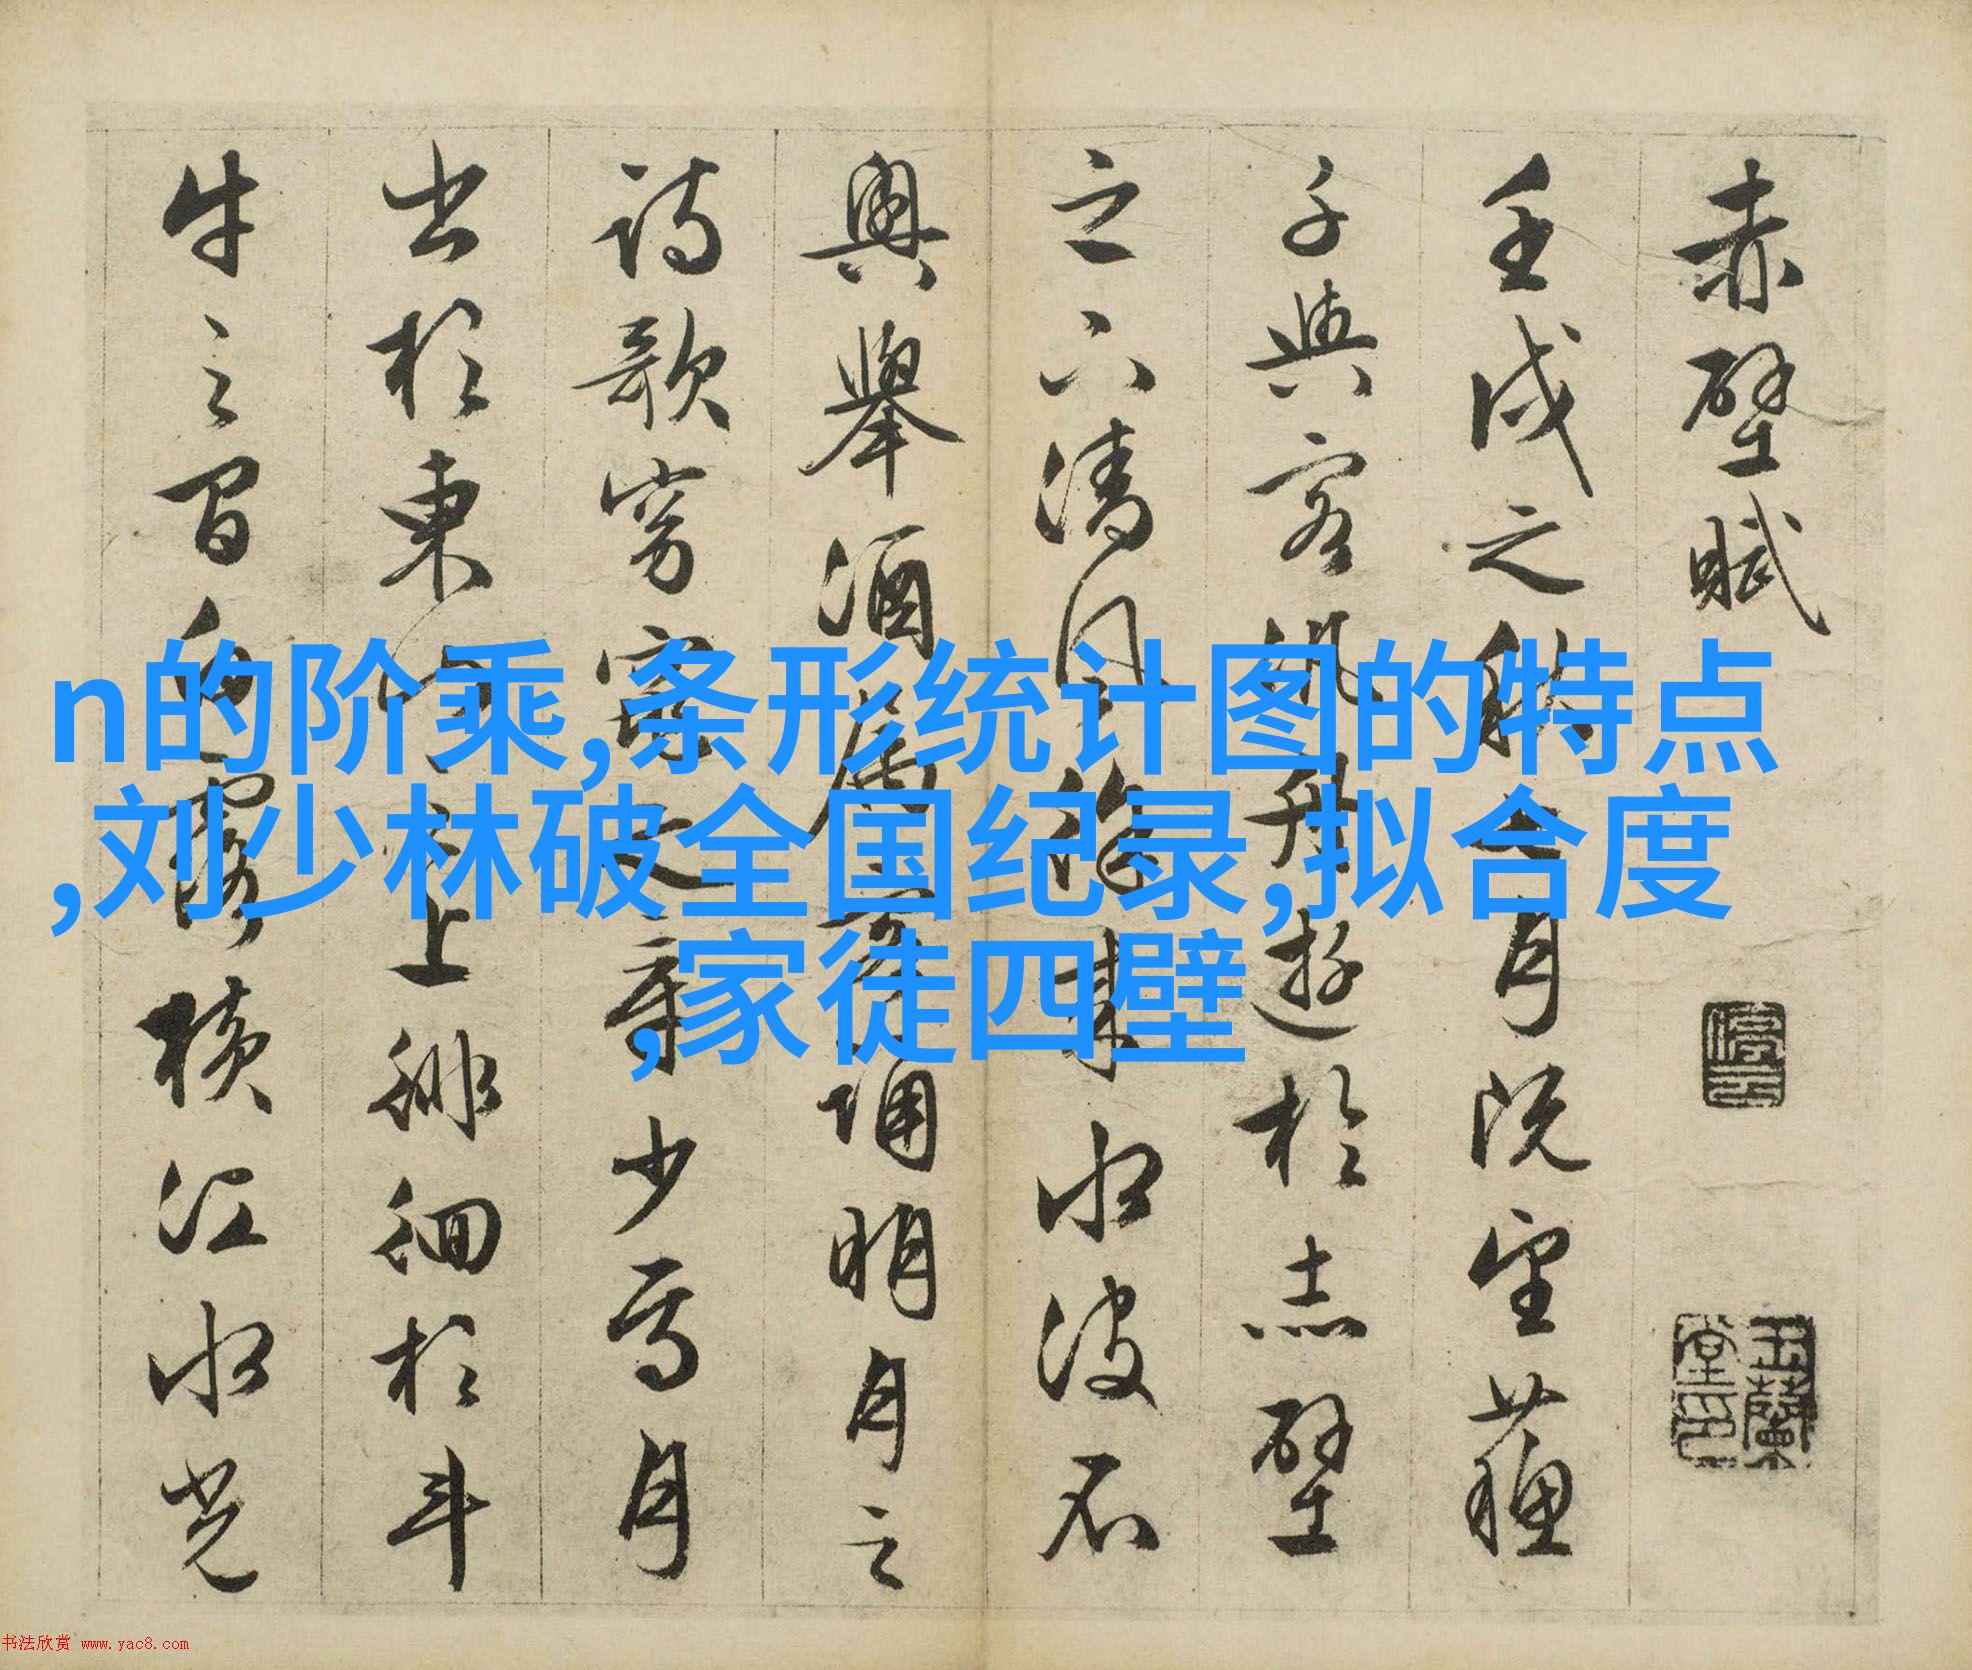 赤壁賦
壬戌之秋七月既望蘇
子與客泛舟遊於赤壁
之下清風徐來水波不
興舉酒屬客誦明月之
詩歌窈窕之章少焉月
出於東山之上徘徊於斗
牛之間白露橫江水光
n的阶乘,条形统计图的特点
,刘少林破全国纪录,拟合度
,家徒四壁
书法欣赏 www.yac8.com